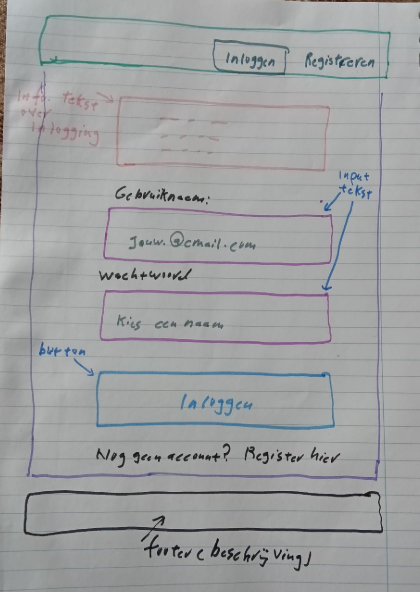 Inloggen Registreren
Info. tekst
over
inlogging
Gebruiknaam:
input
tekst
Jouw.@email.com
Wachtwoord
Kies een naam
button
Inloggen
Nog geen account? Register hier
footer (beschrijvings)